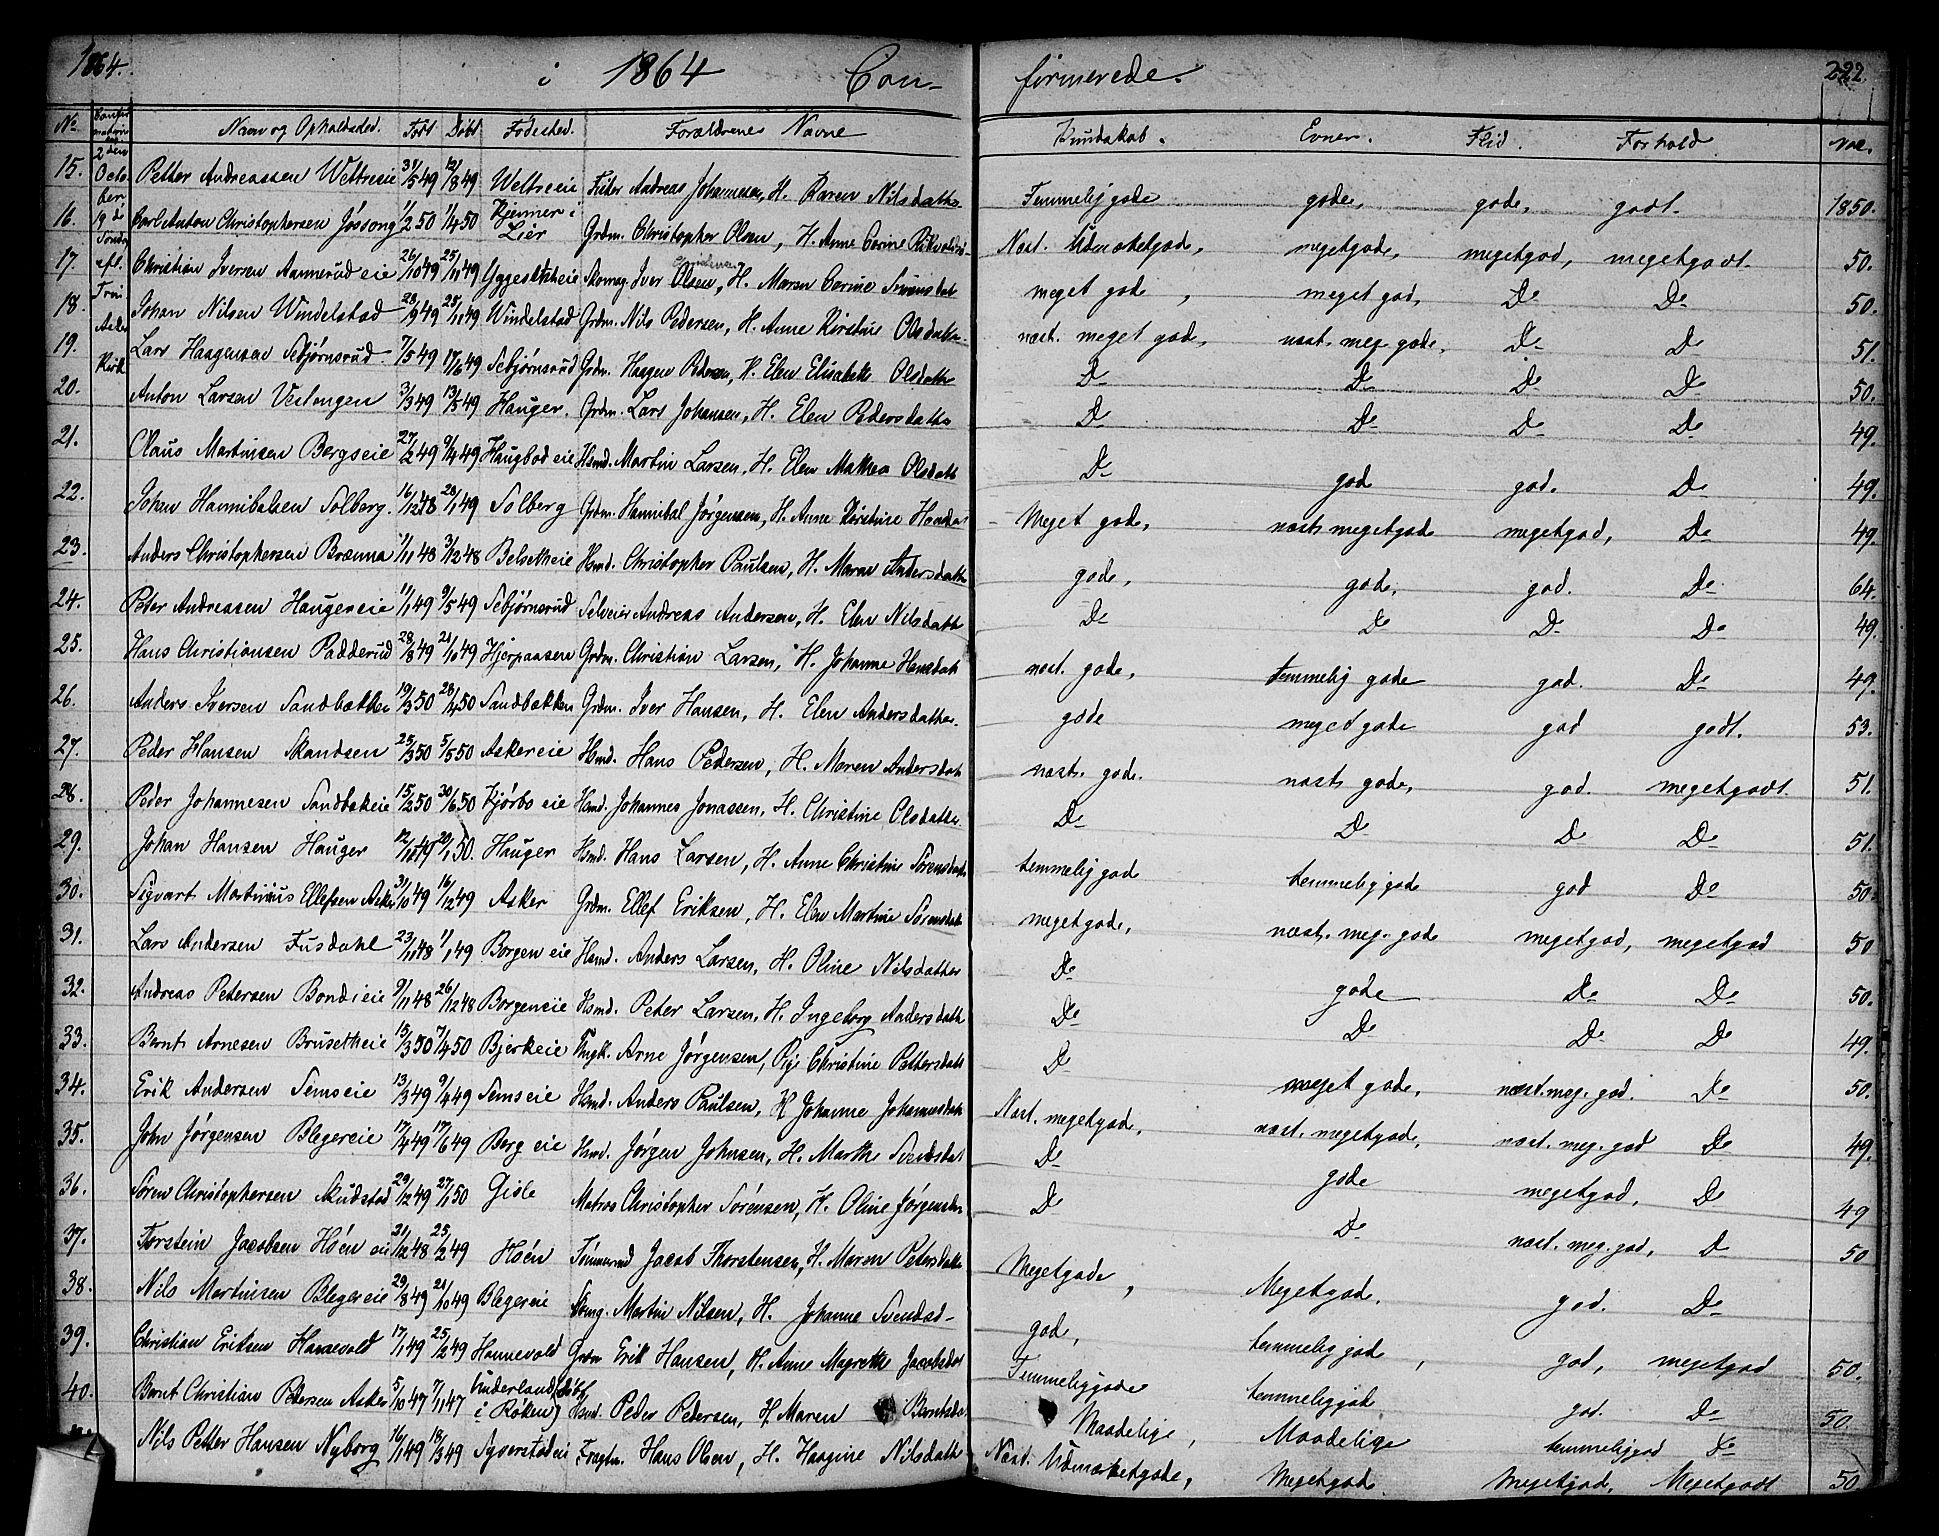 1864.
i 1864 Con- firmerede.
222.
No Navn og Opholdssted. Født Døbt Fødested. Forældrenes Navne Kundskab. Evner. Flid. Forhold. Vac.
2den October, 19de Søndag efl. Trin Asker Kirk
15. Petter Andreassen Wettreeie 31/5 49 12/8 49 Wettreeie Andreas Johannesen, H. Karen Nilsdatter Temmelig gode gode, gode, godt. 1850.
16. Carl Anton Christophersen Jøssong 1/2 50 1/4 50 Kjenner i Lier Grdm. Christopher Olsen, H. Anne Corine Næst. Udmærketgod, megetgode, megetgod, megetgodt. 50.
17. Christian Iversen Aannerud eie 26/10 49 25/11 49 Yggesetheie Skomag. Iver Olsen, H. Maren Corine Simensdat meget gode, meget god, Do Do 50.
18. Johan Nilsen Windelstad 28/9 49 25/11 49 Windelstad Grdm. Nils Pedersen, H. Anne Kirstine Olsdatter næst. meget god, næst. meg. gode, Do Do 51.
19. Lars Haagensen Sebjørnsrud 7/5 49 17/6 49 Sebjørnsrud Grdm. Haagen Pedersen, H. Elen Elisabeth Olsdatter Do Do Do Do 50.
20. Anton Larsen Vestengen 3/3 49 13/5 49 Hauger. Grdm. Lars Johansen, H. Elen Pedersdatter Do Do Do Do 49.
21. Claus Martinsen Bergseie 27/2 49 9/4 49 Haugbod eie Hsmd. Martin Larsen, H. Elen Mathea Olsdatt Do god god. Do 49.
22. Johan Hannibalsen Solberg. 16/12 48 28/1 49 Solberg Grdm. Hannibal Jørgensen, H. Anne Kirstine Meget gode, næst megetgode megetgod, Do 49.
23. Anders Christophersen Brænna 1/11 48 3/12 48 Belsetheie Hsmd. Christopher Paulsen, H. Maren Andersdatter gode, gode, god. Do 64.
24. Peter Andreasen Haugereie 11/1 49 9/5 49 Sebjørnsrud Selveier Andreas Andersen, H. Elen Nilsdatter Do Do Do Do 49.
25. Hans Christiansen Padderud 28/8 49 21/10 49 Hjerpaasen Grdm. Christian Larsen, H. Johanne Hansdatt næst. gode, temmelig gode god. Do 49.
26. Anders Iversen Sandbækken 19/3 50 28/4 50 Sandbækken Grdm. Iver Hansen, H. Elen Andersdatter. gode meget gode god godt. 53.
27. Peder Hansen Skandsen 25/3 50 5/5 50 Askereie Hsmd. Hans Pedersen, H. Maren Andersdatt næst. gode. næst. gode, god. megetgodt. 51.
28. Peder Johannesen Sandbækeie 15/2 50 30/6 50 Kjørbo eie Hsmd. Johannes Jonassen, H. Christine Olsdatter. Do Do Do Do 51.
29. Johan Hansen Hauger 12/10 49 20/1 50. Hauger Hsmd. Hans Larsen, H. Anne Christine Sørensdatt temmelig god temmelig gode god Do 50.
30. Sigvart Martinius Ellefsen Asker 31/10 49 16/12 49 Asker Grdm. Ellef Eriksen, H. Elen Martine Sørensdatt megetgode, næst. meg. gode megetgod, megetgod 50
31. Lars Andersen Fusdahl 23/11 48 1/1 49 Borgen eie Hsmd. Anders Larsen, H. Oline Nilsdatter Do gode Do Do 50.
32. Andreas Petersen Bondieie 9/11 48 26/12 48 Borgeneie Hsmd. Peter Larsen, H. Ingeborg Andersdatt Do Do Do Do 49.
33. Bernt Arnesen Brusetheie 15/3 50 7/4 50 Bjerkeie Ungk. Arne Jørgensen, Pige Christine Pettersdatt Do meget gode, næst. meg. god. Do 50.
34. Erik Andersen Semseie 13/3 49 9/4 49 Semseie Hsmd. Anders Paulsen, H Johanne Johannesdatt Næst. megetgod, næst. megetgod, næst. meg. god Do 49.
35. John Jørgensen Blegereie 17/4 49 17/6 49 Berg eie Hsmd. Jørgen Johnsen, H. Marthe Svendsdat Do gode megetgod, Do 49
36. Søren Christophersen Skudstad 29/12 49 27/1 50 Gisle Matros Christopher Sørensen, H. Oline Jørgensdatt Do Do næst. meg. god, Do 50
37. Torstein Jacobsen Høen eie 21/12 48 25/2 49 Høen Tømmermd Jacob Thorstensen, H. Maren Petersdatter Megetgode, Megetgode, god. Do
38. Nils Martinsen Blegereie 29/8 49 21/10 49 Blegereie Skomg. Martin Nilsen, H. Johanne Svendsd- god, temmelig gode, god, megetgod 50.
39. Christian Eriksen Hannevold 17/1 49 25/2 49 Hannevold Grdm Erik Hansen, H. Anne Magrethe Jacobsdat Temmeliggode temmeliggod god. Do 50.
40. Bernt Christian Petersen Asker 5/10 47 7/11 47 Underland i Røken Hsmd Peder Pedersen, H. Maren Berntsda Maadelige, Maadelige temmeliggod Do
Nils Petter Hansen Nyborg 16/1 49 18/3 49 Syverstadeie Fragtm. Hans Olsen, H. Haagine Nilsdatter Næst. Udmærketgode, Megetgode. Megetgod, Megetgodt 50